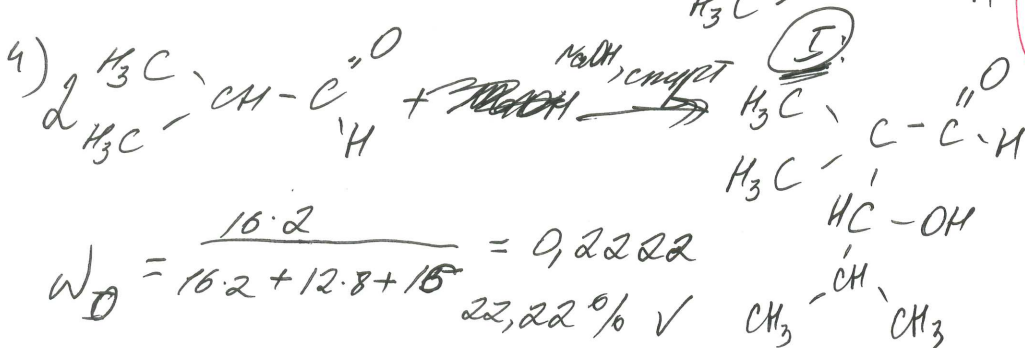 H₃C
4) 2 H₃C H₃C CH - C O H + NaOH, спирт → I H₃C H₃C C - C O H
HC - OH
CH
CH₃ CH₃
W_O = 16·2 / 16·2 + 12·8 + 16 = 0,2222
22,22 % ✓